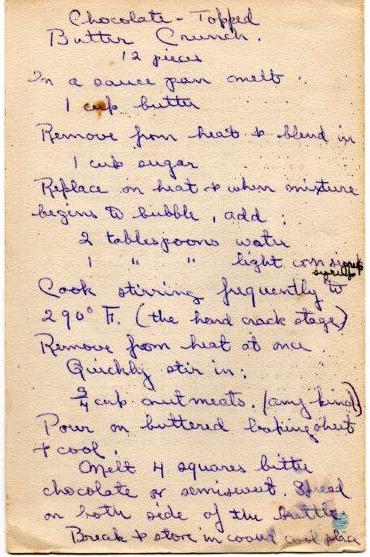 Chocolate - Topped
Butter Crunch.
12 pieces
In a sauce pan melt:
1 cup butter
Remove from heat & blend in
1 cup sugar
Replace on heat & when mixture
begins to bubble, add:
2 tablespoons water
1 " " light corn syrup
syrup
Cook stirring frequently to
290° F. (the hard crack stage)
Remove from heat at once
Quickly stir in:
3/4 cup nutmeats. (any kind)
Pour on buttered baking sheet
& cool.
Melt 4 squares bitter
chocolate or semisweet. Spread
on both side of the brittle
Break & store in cool place